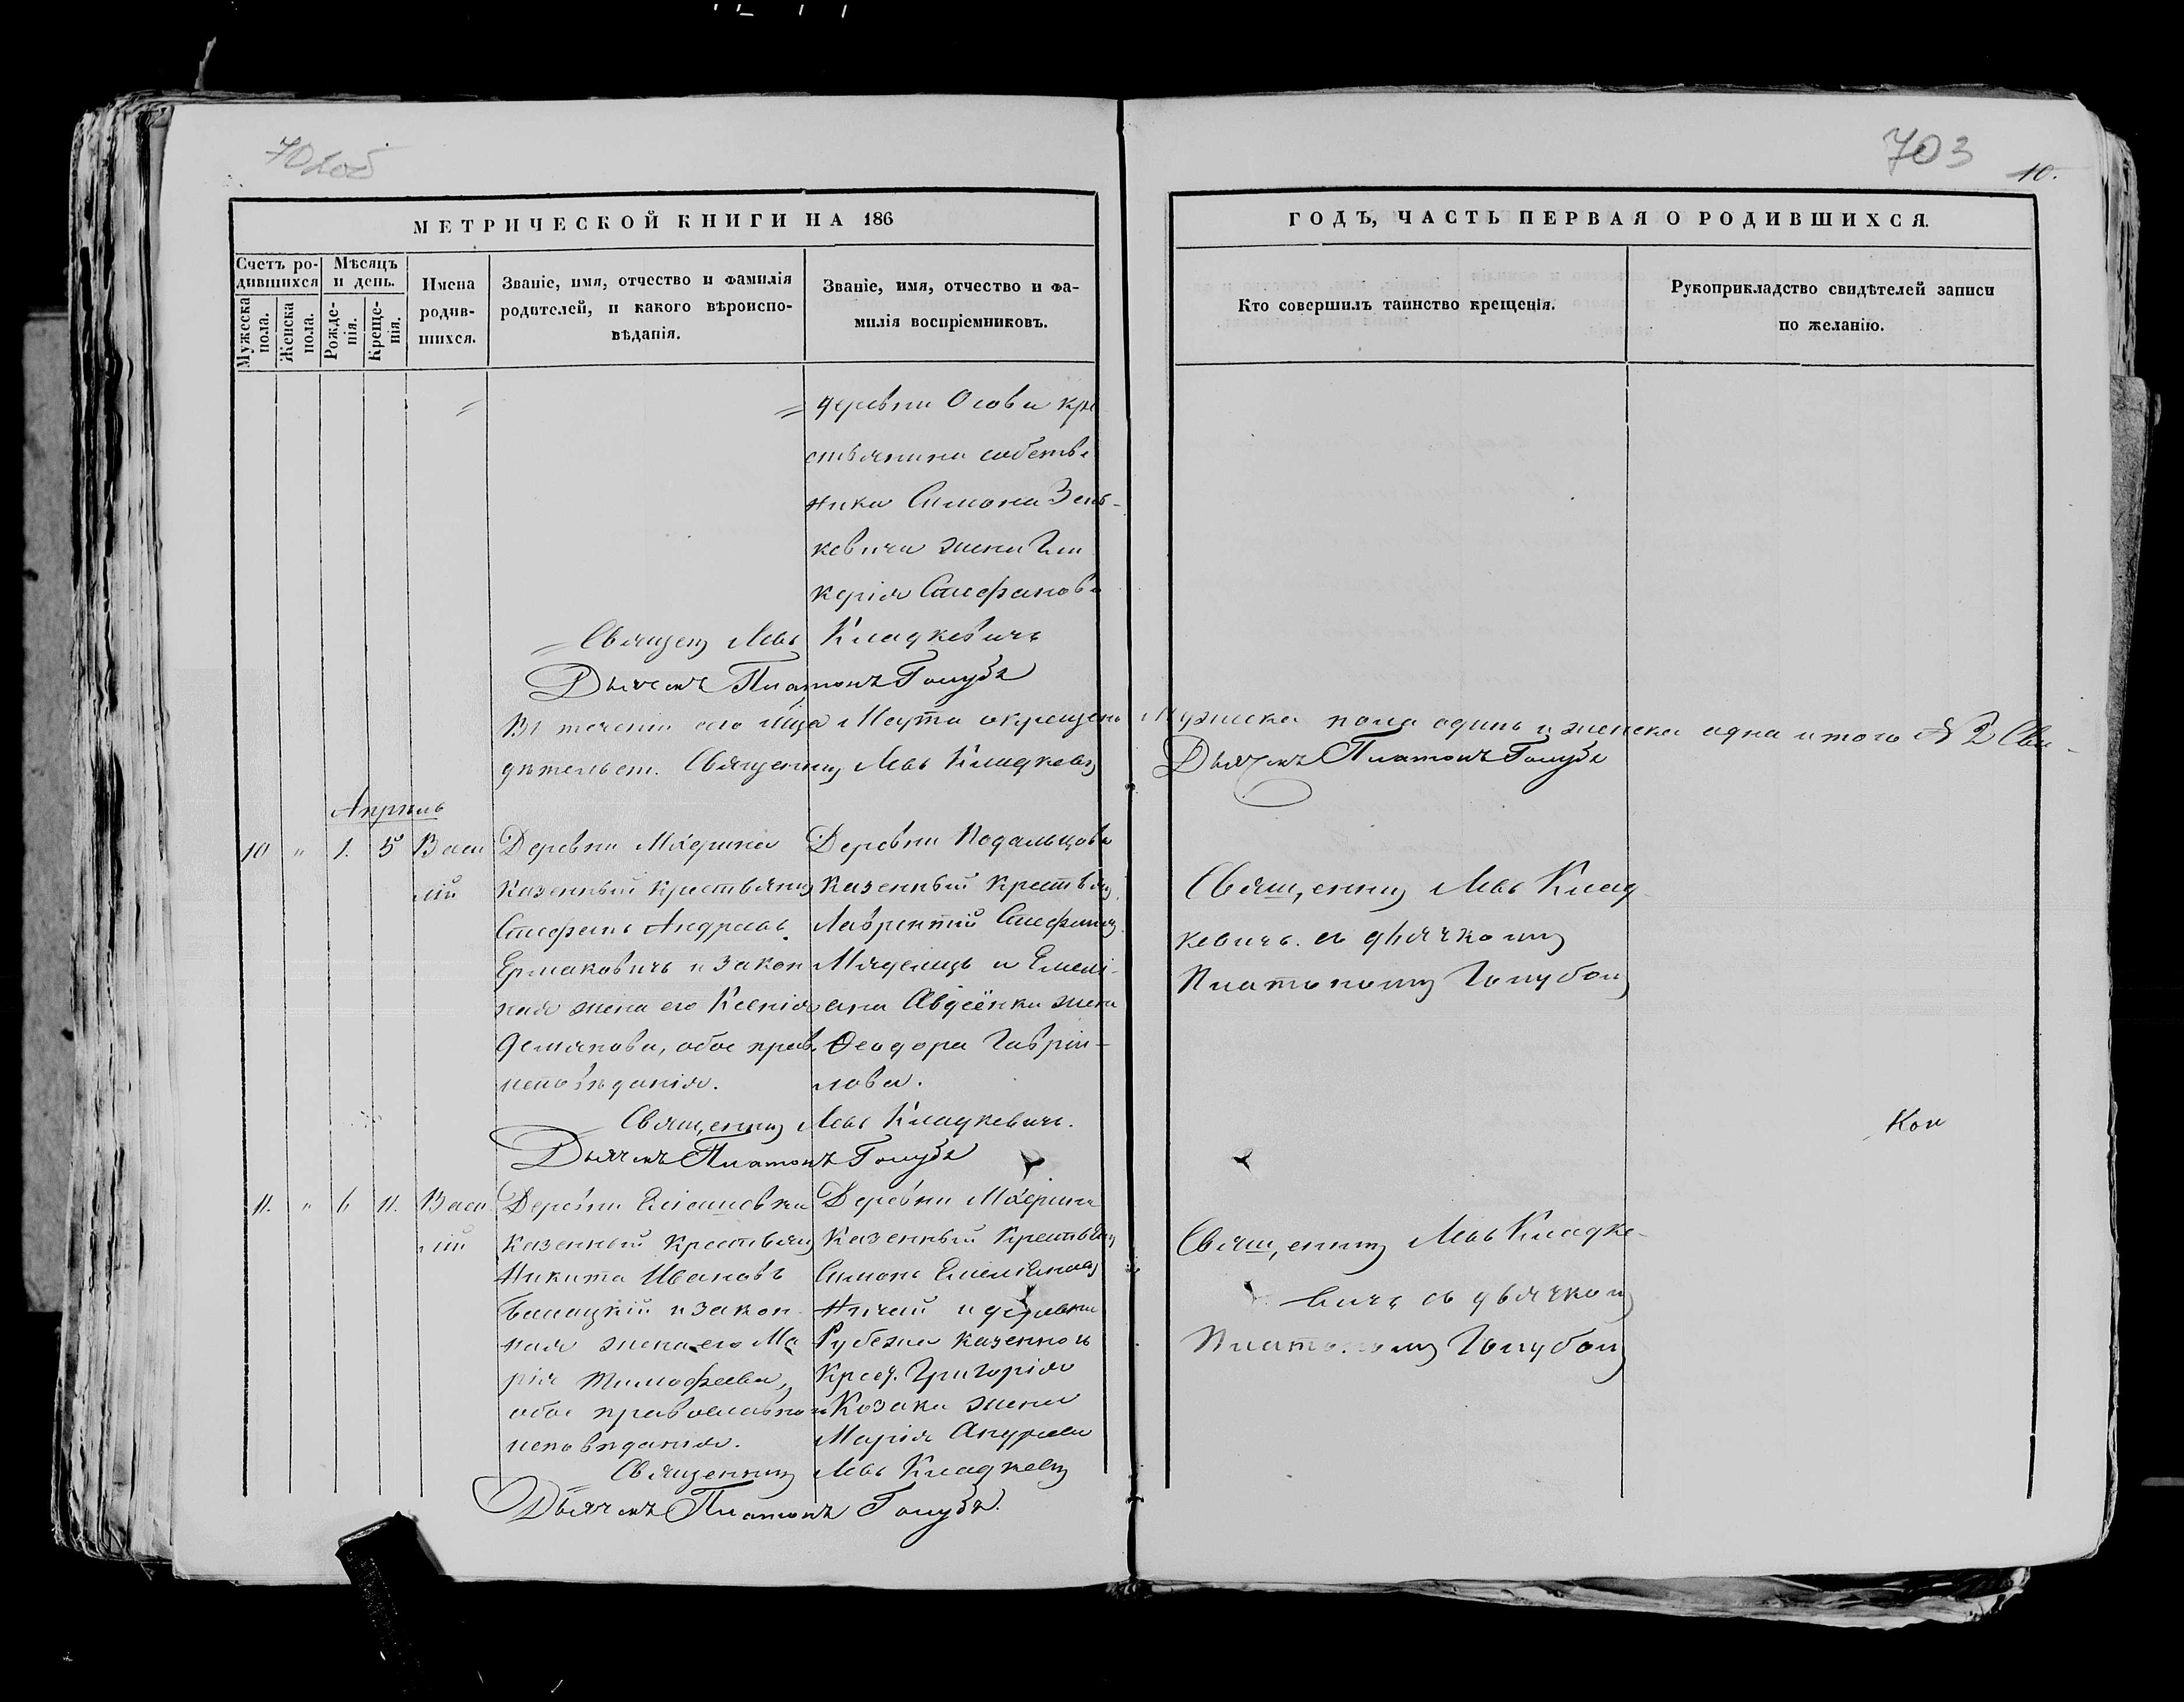 703
10.
МЕТРИЧЕСКОЙ КНИГИ НА 186
ГОДЪ, ЧАСТЬ ПЕРВАЯ О РОДИВШИХСЯ.
Счетъ ро-
дившихся
Мужеска пола.
Женска пола.
Мѣсяцъ
и день.
Рожде-
нія.
Креще-
нія.
Имена
родив-
шихся.
Званіе, имя, отчество и фамилія
родителей, и какого вѣроиспо-
вѣданія.
Званіе, имя, отчество и фа-
милія воспріемниковъ.
Кто совершилъ таинство крещенія.
Рукоприкладство свидѣтелей записи
по желанію.
деревни Осова кре
стьянина собстве
ника Симона Зень-
кевича жена Гли
керія Стефанова
Священ Левъ Кладкевичъ
Дьячекъ Платонъ Голубъ
Въ теченіи сего мца Марта окрещено Мужеска пола одинъ и женска одна итого № 2 Сви-
дѣтельст. Священник Левъ Кладкевич Дьячекъ Платонъ Голубъ
Апрѣль
10 " 1. 5 Васи
лій
Деревни Мжерина
Казенный крестьянин
Стефанъ Андреевъ
Ермаковичъ и закон
ная жена его Ксенія
Демянова, обое прав.
исповѣданія.
Деревни Подальцова
Казенный крестьян
Лаврентій Стефанов
Мядель и Емелі-
ана Авдѣёнка жена
Ѳеодора Гавріи-
лова.
Священник Левъ Клад
кевичъ. съ дьячком
Платоном Голубом
Священник Левъ Кладкевичъ.
Дьячекъ Платонъ Голубъ
Кои
11. " 6 11. Васи
лій
Деревни
Казенный Крестьян
Никита Ивановъ
и закон
ная жена его Ма
рія Тимофеева,
обое православно
исповѣданія.
Деревни Мжерина
Казенный Крестьян
Симонъ Емеліянов
и деревни
Рубежа казенного
Крест. Григорія
Козака жена
Марія Андреева
Священник Левъ Кладке-
вичъ съ дьячком
Платоном Голубом
Священник Левъ Кладкевич
Дьячекъ Платонъ Голубъ.